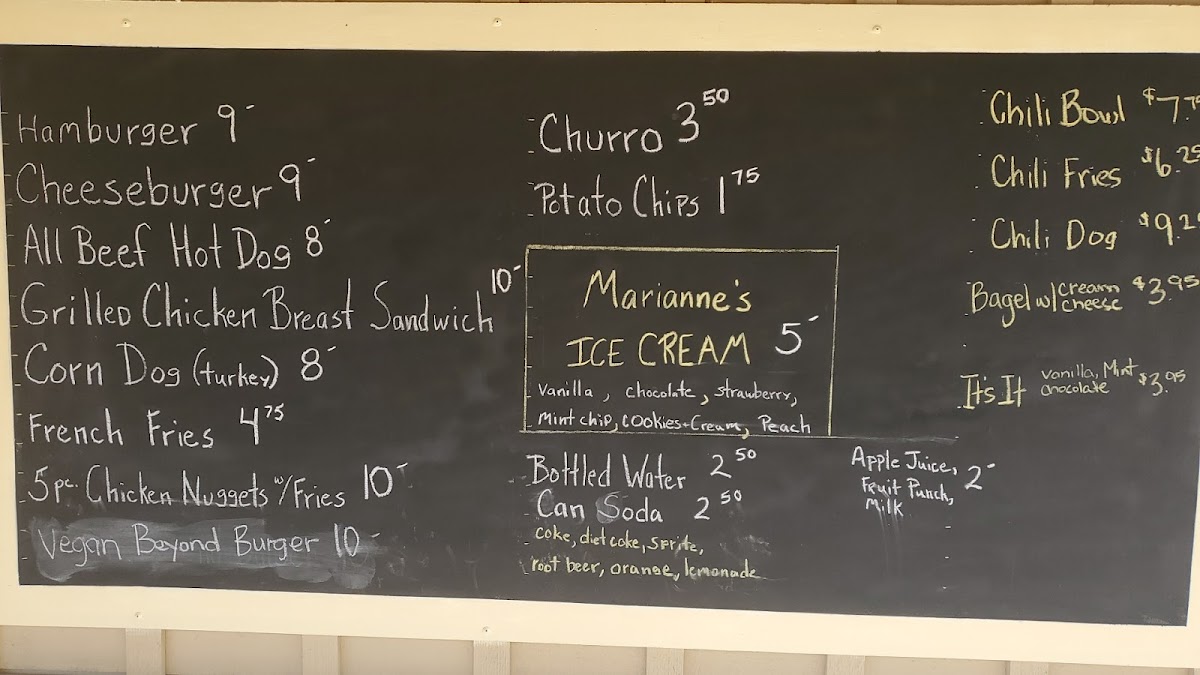 Hamburger 9-
Cheeseburger 9-
All Beef Hot Dog 8-
Grilled Chicken Breast Sandwich 10-
Corn Dog (turkey) 8-
French Fries 4 75
5 pc. Chicken Nuggets w/Fries 10-
Vegan Beyond Burger 10-
Churro 3 50
Potato Chips 1 75
Marianne's
ICE CREAM 5-
vanilla, chocolate, strawberry,
Mint chip, cookies+cream, Peach
Bottled Water 2 50
Can Soda 2 50
coke, diet coke, sprite,
root beer, orange, lemonade
Apple Juice, 2-
Fruit Punch,
Milk
Chili Bowl
Chili Fries $6.25
Chili Dog
Bagel w/ cream cheese $3.95
It's It vanilla, Mint $3.95
chocolate